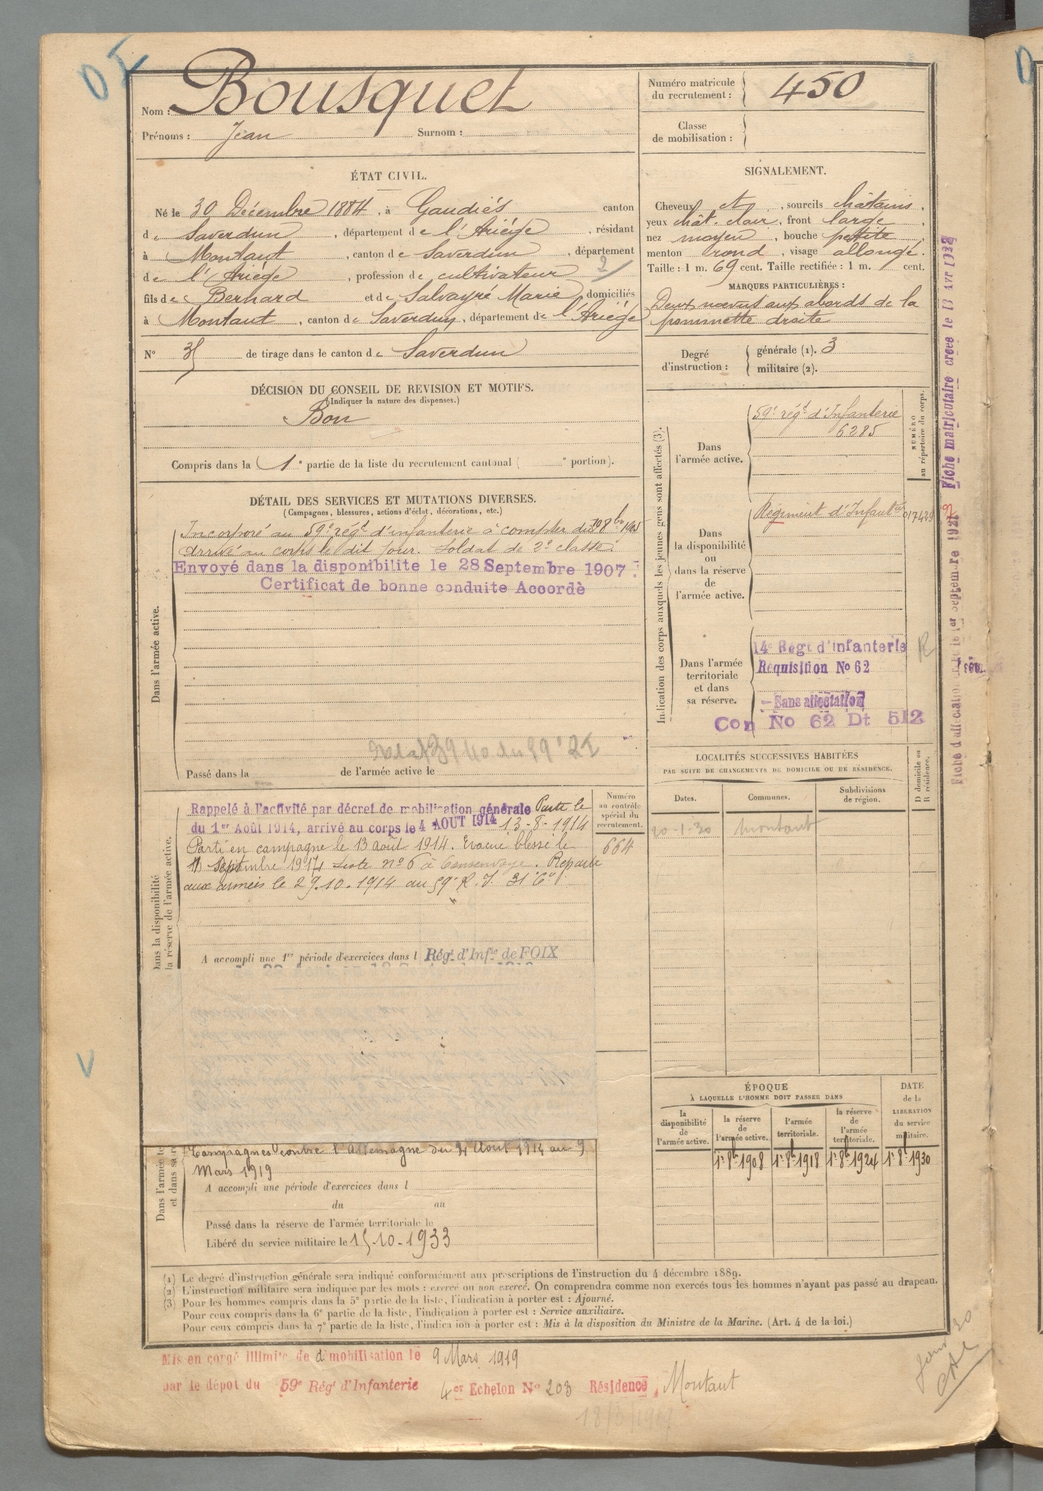 Nom : Bousquet
Prénoms : Jean Surnom :
Numéro matricule du recrutement : 450
Classe de mobilisation :
ÉTAT CIVIL.
Né le 30 Décembre 1884, à Gaudiés canton
de Saverdun, département de l'Ariège, résidant
à Montaut, canton de Saverdun, département
de l'Ariège, profession de cultivateur
fils de Bernard et de Salvayré Marie, domiciliés
à Montaut, canton de Saverdun, département de l'Ariège
N° 35 de tirage dans le canton de Saverdun
SIGNALEMENT.
Cheveux et, sourcils châtains,
yeux chât. clair, front large
nez moyen, bouche petite
menton rond, visage allongé.
Taille : 1 m. 69 cent. Taille rectifiée : 1 m. cent.
MARQUES PARTICULIÈRES :
Deux noevus aux abords de la
pommette droite
Degré d'instruction : générale (1). 3
militaire (2).
DÉCISION DU CONSEIL DE REVISION ET MOTIFS.
(Indiquer la nature des dispenses.)
Bon
Compris dans la 1e partie de la liste du recrutement cantonal ( e portion).
DÉTAIL DES SERVICES ET MUTATIONS DIVERSES.
(Campagnes, blessures, actions d'éclat, décorations, etc.)
Dans l'armée active.
Incorporé au 59e régt d'infanterie à compter du 8bre 1905
Arrivé au corps le dit jour. Soldat de 2e classe.
Envoyé dans la disponibilite le 28 Septembre 1907
Certificat de bonne conduite Accordè
Passé dans la de l'armée active le
Dans la disponibilité
la réserve de l'armée active.
Rappelé à l'activité par décret de mobilisation générale Parti le
du 1er Août 1914, arrivé au corps le 4 AOUT 1914 13-8-1914
Parti en campagne le 13 août 1914. Evacué blessé le
Septembre 1914 liste n° 6 à Repart
aux armées le 29.10.1914 au 59e R.I. 31 Cie
A accompli une 1re période d'exercices dans l Régt d'Infie de FOIX
Numéro au contrôle spécial du recrutement.
664
Indication des corps auxquels les jeunes gens sont affectés (3).
NUMÉRO au répertoire du corps.
Dans l'armée active.
59e régt d'Infanterie
6285
Dans la disponibilité ou dans la réserve de l'armée active.
Régiment d'Infantie
Dans l'armée territoriale et dans sa réserve.
14e Régt d'infanterie
Requisition No 62
Sans affectation
Con No 62 Dt 512
Fiche matriculaire créée le 17 Avr 1932
LOCALITÉS SUCCESSIVES HABITÉES
PAR SUITE DE CHANGEMENTS DE DOMICILE OU DE RÉSIDENCE.
Dates. Communes. Subdivisions de région. D domicile ou R résidence.
20-1-30 Montaut
ÉPOQUE
À LAQUELLE L'HOMME DOIT PASSER DANS
la disponibilité de l'armée active. la réserve de l'armée active. l'armée territoriale. la réserve de l'armée territoriale. DATE de la LIBÉRATION du service militaire.
1er 8bre 1908 1er 8bre 1918 1er 8bre 1924 1er 8bre 1930
Campagnes contre l'Allemagne du 4 Août 1914 au 9
Mars 1919
A accompli une période d'exercices dans l
du au
Passé dans la réserve de l'armée territoriale le
Libéré du service militaire le 15-10-1933
(1) Le degré d'instruction générale sera indiqué conformément aux prescriptions de l'instruction du 4 décembre 1889.
(2) L'instruction militaire sera indiquée par les mots : exercé ou non exercé. On comprendra comme non exercés tous les hommes n'ayant pas passé au drapeau.
(3) Pour les hommes compris dans la 5e partie de la liste, l'indication à porter est : Ajourné.
Pour ceux compris dans la 6e partie de la liste, l'indication à porter est : Service auxiliaire.
Pour ceux compris dans la 7e partie de la liste, l'indication à porter est : Mis à la disposition du Ministre de la Marine. (Art. 4 de la loi.)
Mis en congé illimité de démobilisation le 9 Mars 1919
par le dépôt du 59e Régt d'Infanterie 4e Echelon No 203 Résidence, Montaut